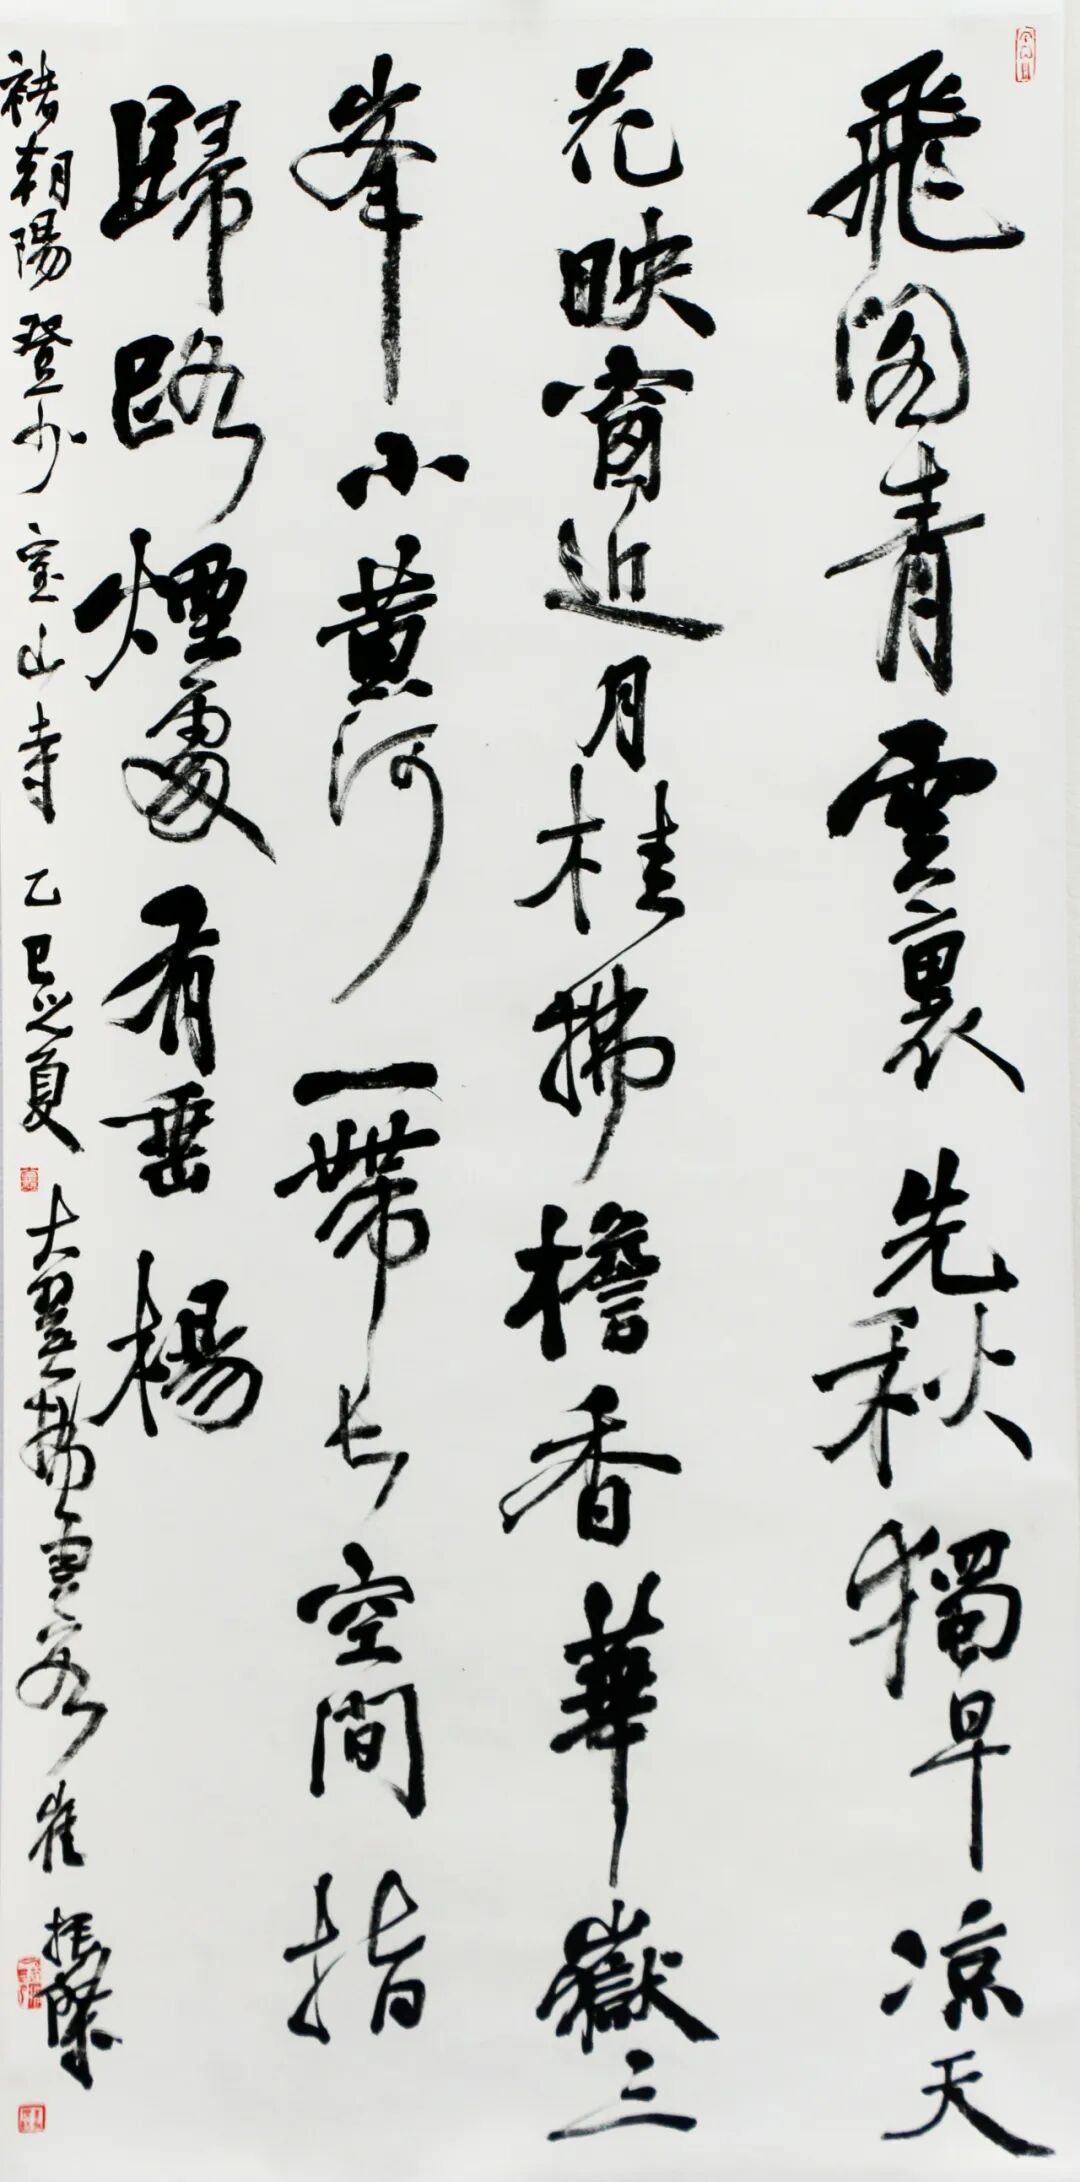 飛阁青雲裏先秋獨早凉天
花映窗近月桂拂檐香華嶽三
峯小黄河一帶长空間指
歸路煙處有垂楊
褚朝陽登少室山寺乙巳之夏
大翼拂雲客崔振